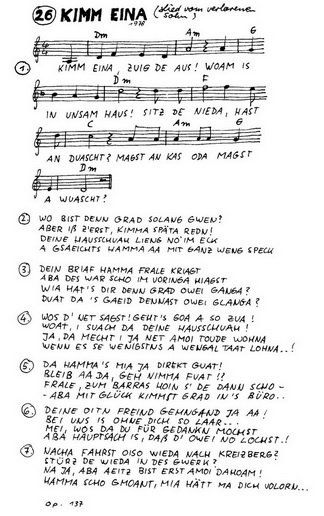 26 KIMM EINA (Lied vom verlorenen Sohn)
1978
Dm Am G
1.) KIMM EINA, ZUIG DE AUS! WOAM IS
Dm F
IN UNSAM HAUS! SITZ DE NIEDA, HAST
C Am G
AN DUASCHT? MAGST AN KAS ODA MAGST
Dm
A WUASCHT?
2 WO BIST DENN GRAD SOLANG GWEN?
ABER Iß Z'ERST, KIMMA SPÄTA REDN!
DEINE HAUSSCHUAH LIENG NO' IM ECK
A GSAEICHTS HAMMA AA MIT GANZ WENG SPECK
3 DEIN BRIAF HAMMA FRALE KRIAGT
ABA DES WAR SCHO IM VORINGA HIAGST
WIA HAT'S DIR DENN GRAD OWEI GANGA?
DUAT DA 'S GAEID DENNAST OWEI GLANGA?
4 WOS D' NET SAGST! GEHT'S GOA A SO ZUA!
WOAT, I SUACH DA DEINE HAUSSCHUAH!
JA, DA MECHT I JA NET AMOI TOUDE WOHNA
WENN ES SE WENIGSTNS A WENGAL TAAT LOHNA..!
5. DA HAMMA'S MIA JA DIREKT GUAT!
BLEIB AA DA, GEH NIMMA FUAT!?
FRALE, ZUM BARRAS HOIN S' DE DANN SCHO -
- ABA MIT GLÜCK KIMMST GRAD IN'S BÜRO..
6. DEINE OIT'N FREIND GEHNGAND JA AA!
BEI UNS IS OHNE DICH SO LAAR...
MEI, WOS DA DU FÜR GEDANKN MOCHST
ABA HAUPTSACH IS, DAß D' OWEI NO LOCHST.!
7 NACHA FAHRST OISO WIEDA NACH KREIZBERG?
STÜRZ DE WIEDA IN DES GWERK?
NA JA, ABA AEITZ BIST ERST AMOI DAHOAM!
HAMMA SCHO GMOANT, MIA HÄTT MA DICH VOLORN...
op. 137